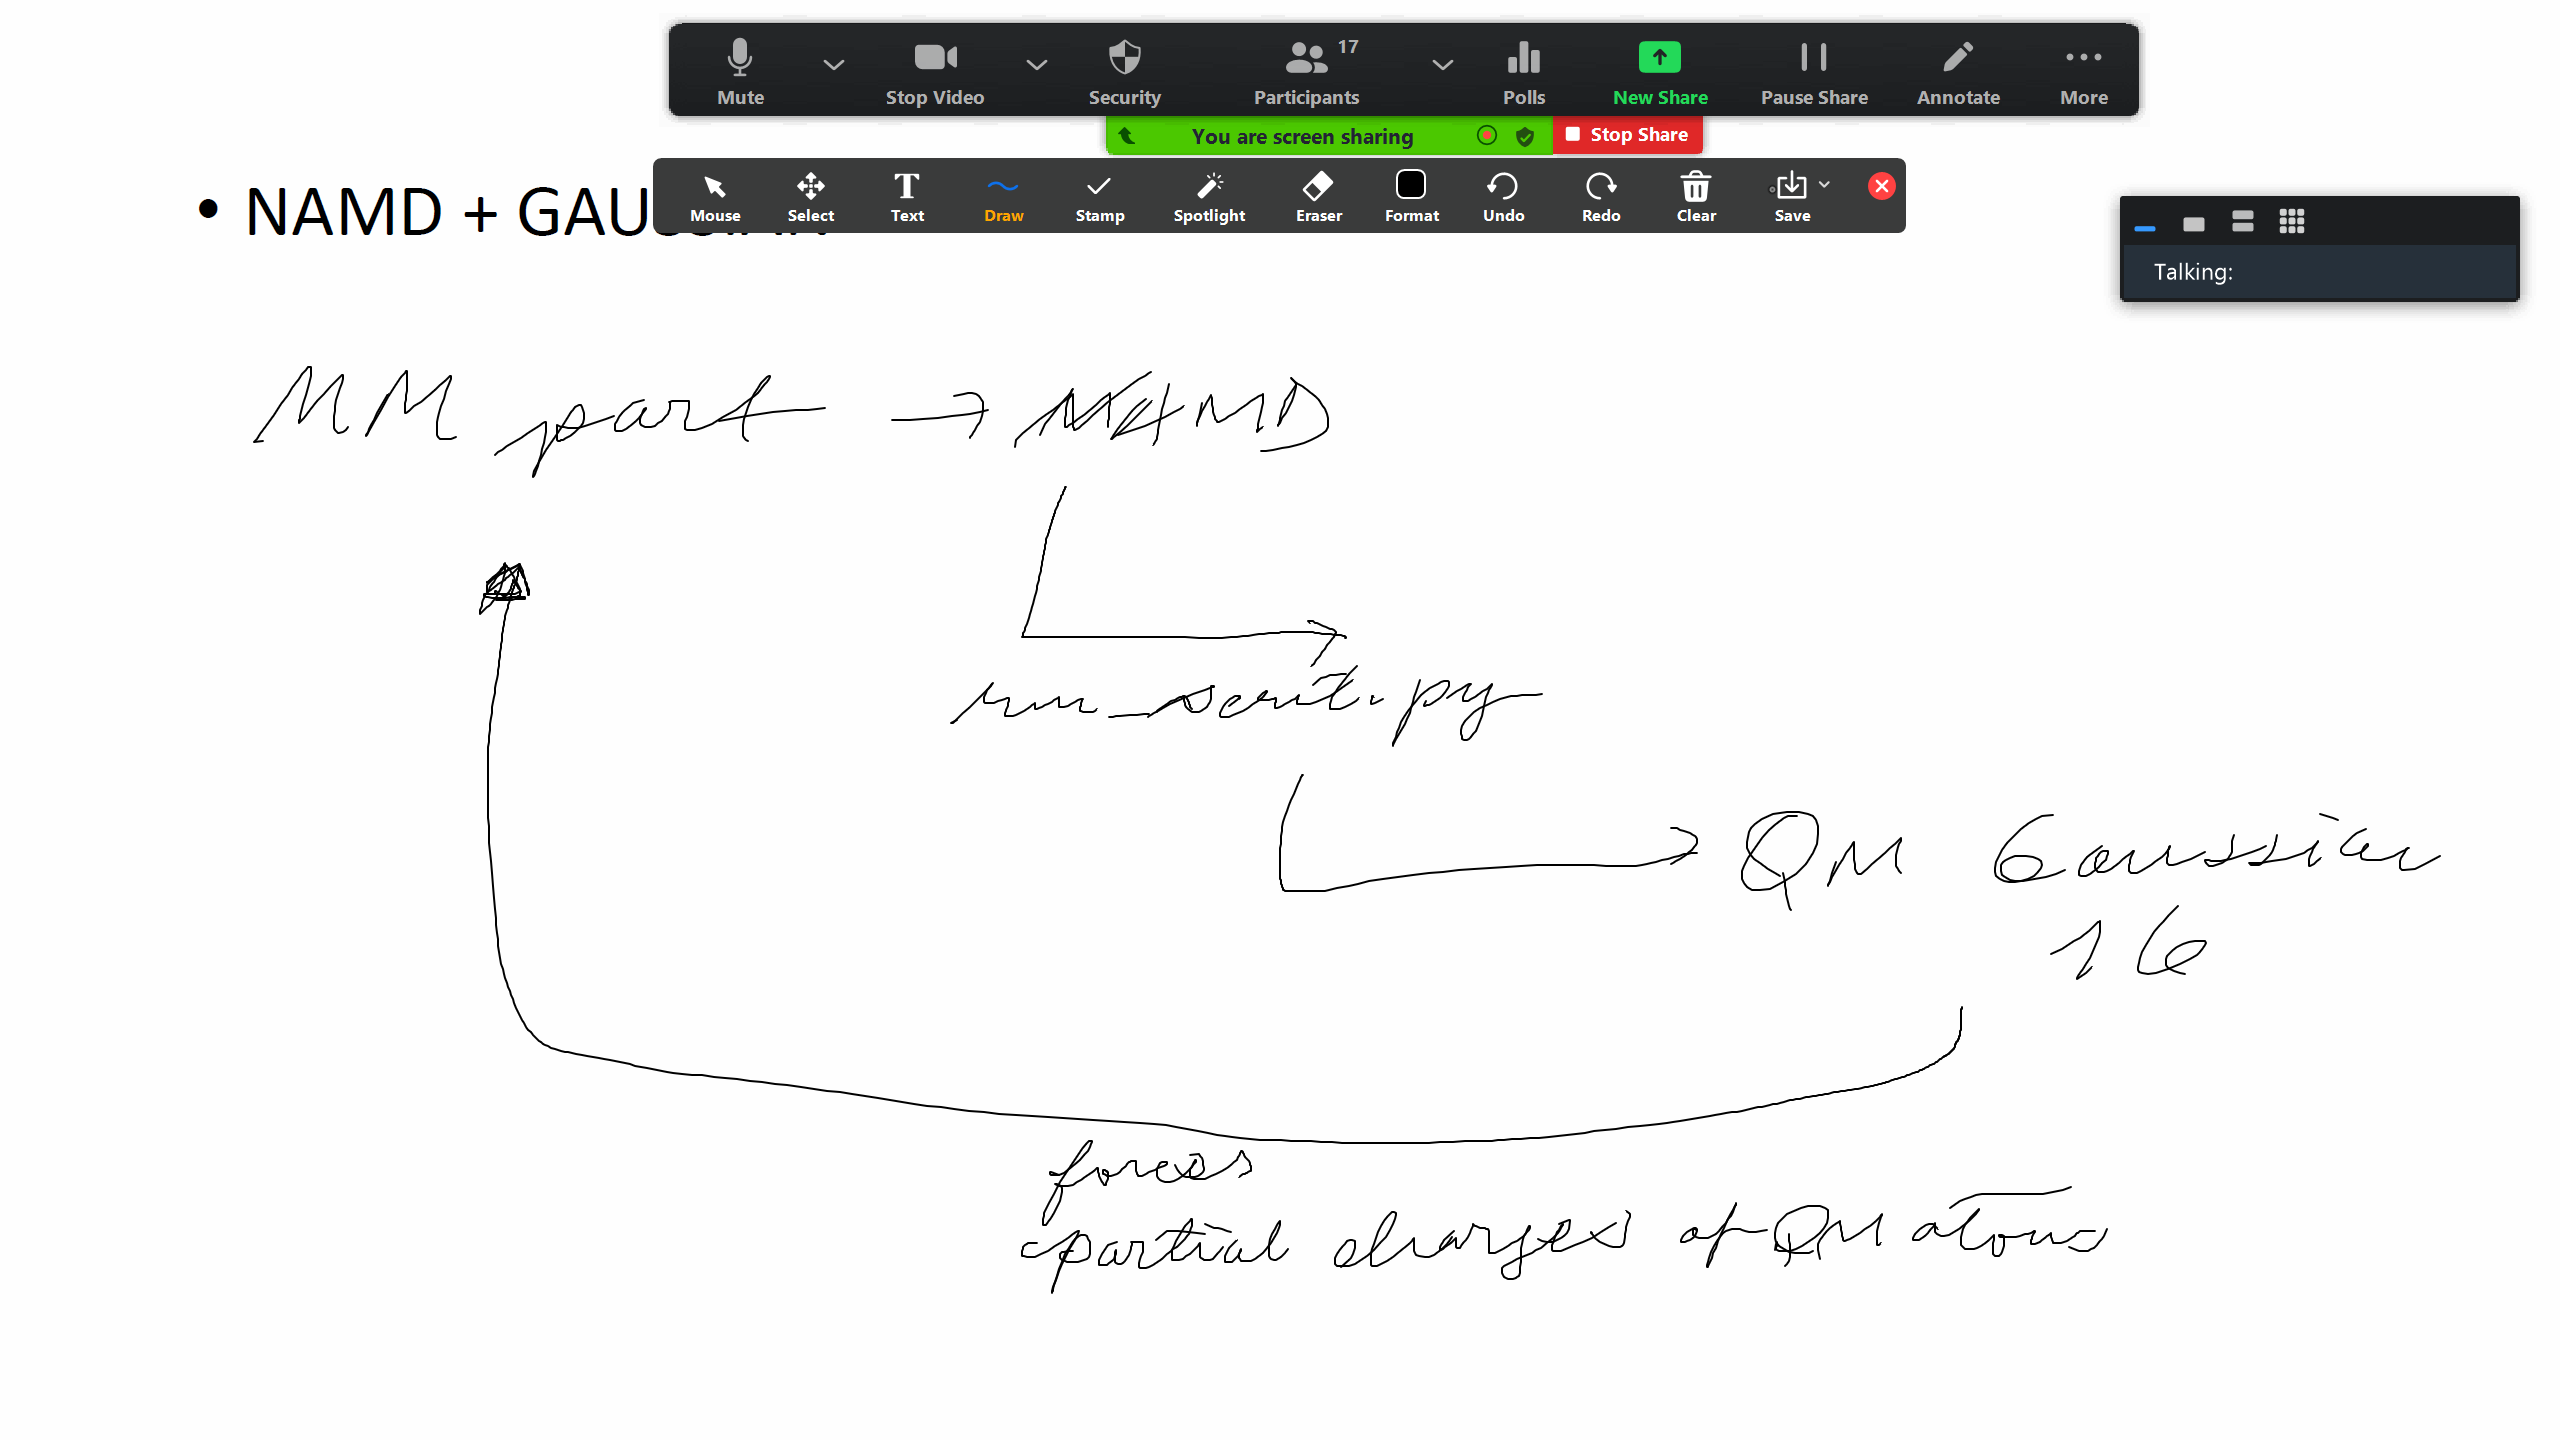 17
Mute Stop Video Security Participants Polls New Share Pause Share Annotate More
You are screen sharing Stop Share
Mouse Select Text Draw Stamp Spotlight Eraser Format Undo Redo Clear Save
• NAMD + GAUSSIAN
Talking:
MM part → NAMD
QM Gaussian
16
forces
partial charges of QM atoms